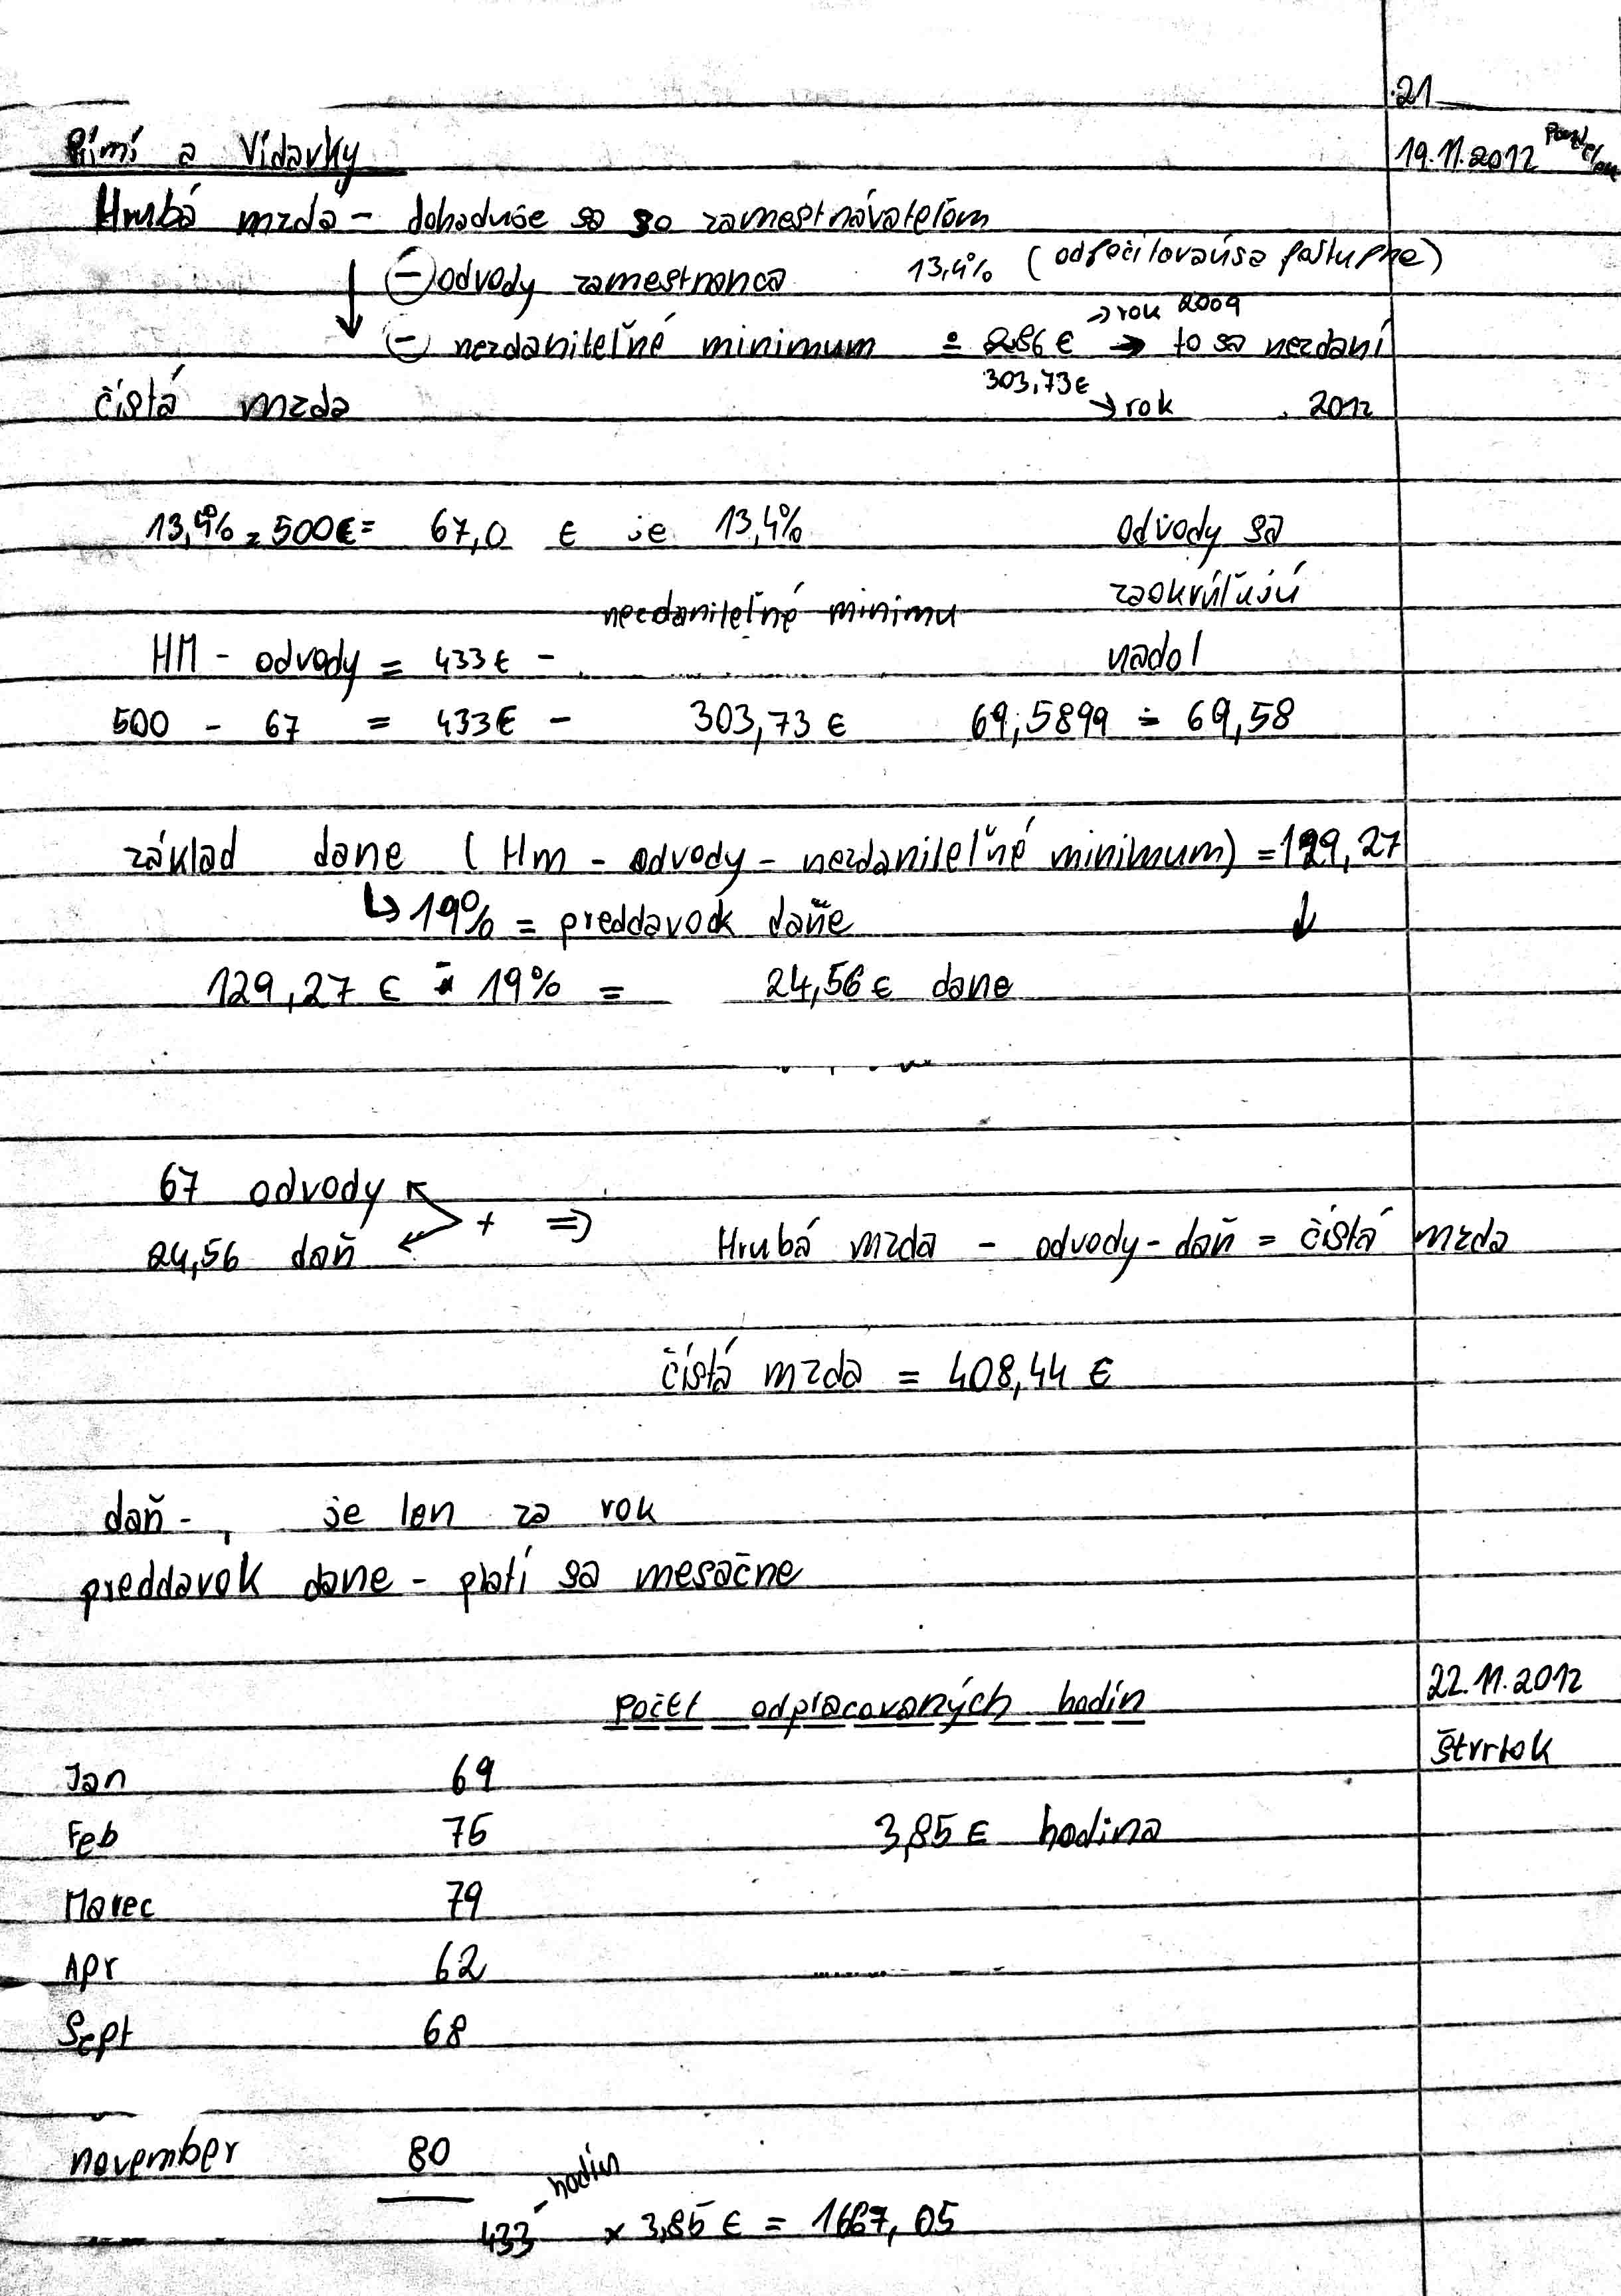 21
19.11.2012
Rímí a Vídavky
Hrubá mzda - dohaduje sa so zamestnávateľom
- odvody zamestnanca 13,4% (odpočítovaúsa postupne)
→ rok 2009
- nezdaniteľné minimum = 286 € → to sa nezdaní
303,73 €
čistá mzda → rok 2012
13,4% z 500€ = 67,0 € je 13,4% odvody sa
nezdaniteľné minimu zaokrúľujú
HM - odvody = 433 € - nadol
500 - 67 = 433€ - 303,73 € 69,5899 = 69,58
základ dane (Hm - odvody - nezdaniteľné minimum) = 129,27
↳ 19% = preddavok daňe ↓
129,27 € * 19% = 24,56 € dane
67 odvody
+ ⇒
24,56 daň Hrubá mzda - odvody - daň = čistá mzda
čistá mzda = 408,44 €
daň - je len za rok
preddavok dane - platí sa mesačne
22.11.2012
Počet odpracovaných hodín
štvrtok
Jan 69
Feb 75 3,85 € hodina
Marec 79
Apr 62
Sept 68
november 80
hodín
433 x 3,85 € = 1667,05